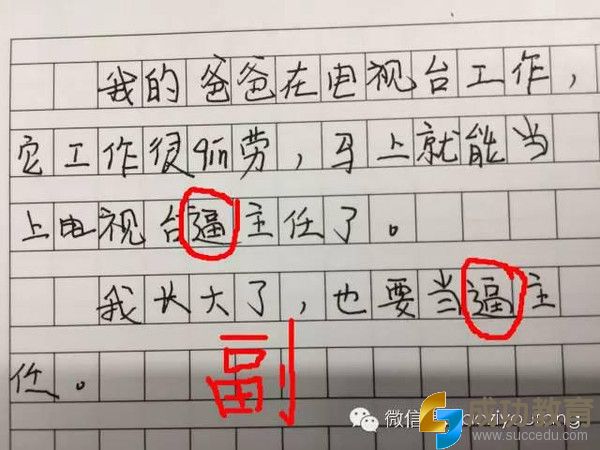 我的爸爸在电视台工作，
它工作很qin劳，马上就能当
上电视台逼主任了。
我长大了，也要当逼主
任。
副
微信
成功教育
www.succedu.com